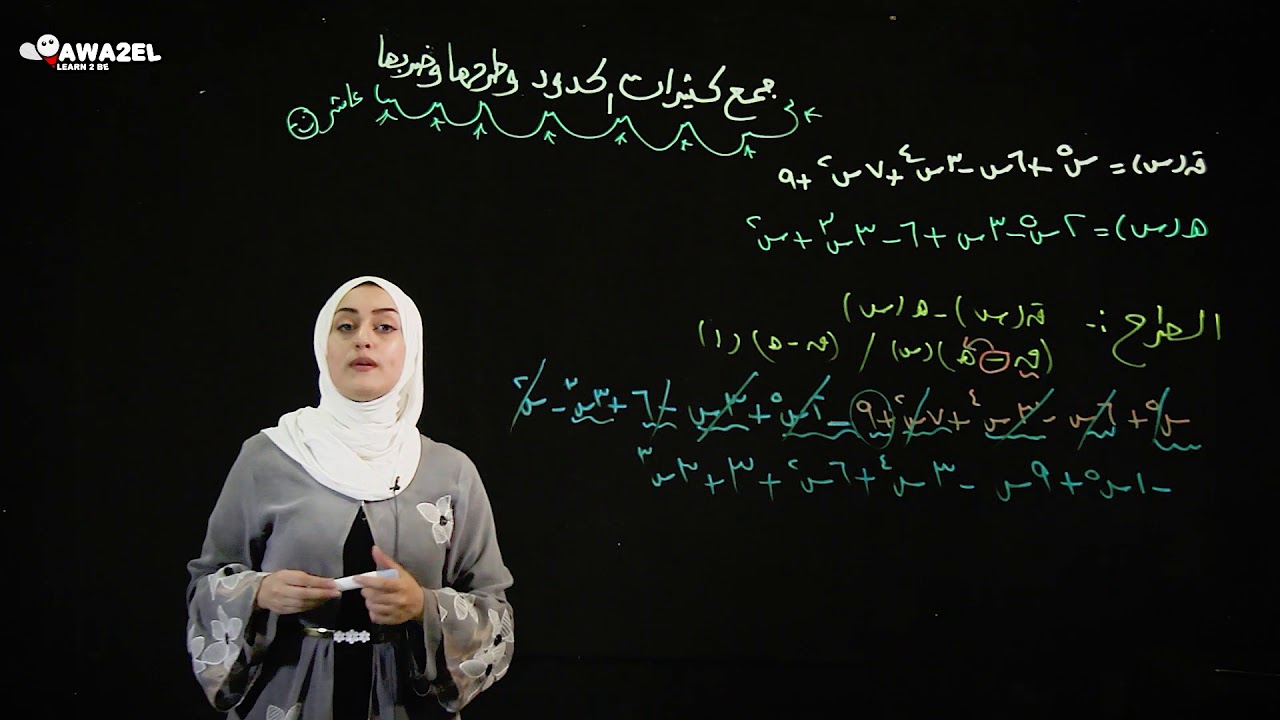 AWA2EL
LEARN 2 BE
جمع كثيرات الحدود وطرحها وضربها
عاشر
ق(س) = س^٥ + ٦س - ٣س^٤ + ٧س^٢ + ٩
ه(س) = ٢س^٥ - ٣س + ٦ - ٣س^٣ + س^٢
الطرح :- ق(س) - ه(س)
(ق - ه)(س) / (ق - ه)(١)
س^٥ + ٦س - ٣س^٤ + ٧س^٢ + ٩ - ٢س^٥ + ٣س - ٦ + ٣س^٣ - س^٢
- ١س^٥ + ٩س - ٣س^٤ + ٦س^٢ + ٣ + ٣س^٣